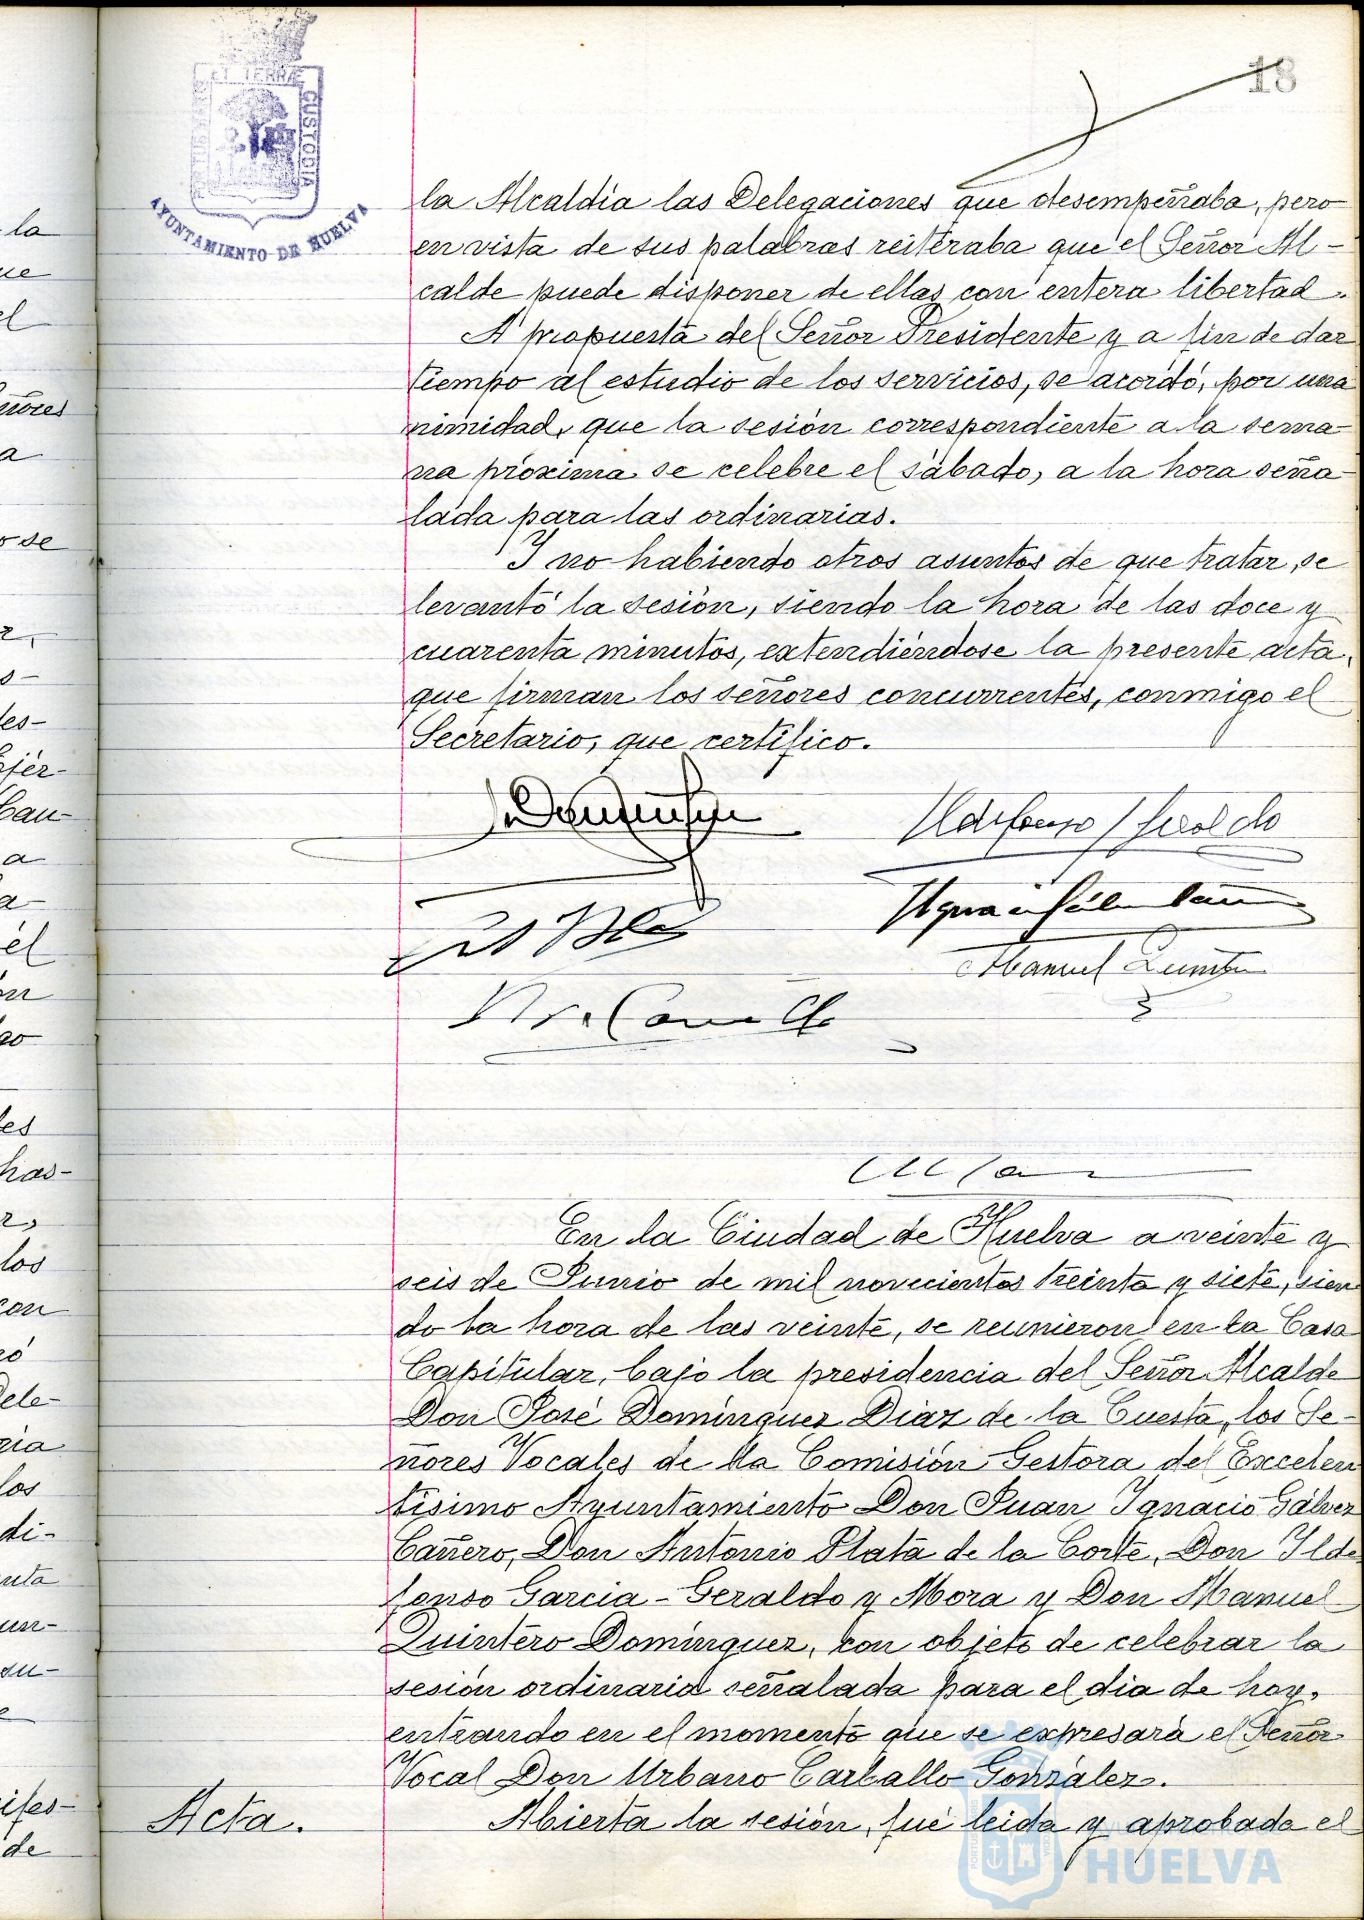 18
PORTUS MARIS ET TERRÆ CUSTODIA
AYUNTAMIENTO DE HUELVA
la Alcaldía las Delegaciones que desempeñaba, pero
en vista de sus palabras reiteraba que el Señor Al-
calde puede disponer de ellas con entera libertad.
A propuesta del Señor Presidente y a fin de dar
tiempo al estudio de los servicios, se acordó, por una
nimidad, que la sesión correspondiente a la sema-
na próxima se celebre el sábado, a la hora seña-
lada para las ordinarias.
Y no habiendo otros asuntos de que tratar, se
levantó la sesión, siendo la hora de las doce y
cuarenta minutos, extendiéndose la presente acta,
que firman los señores concurrentes, conmigo el
Secretario, que certifico.
Ildefonso Geraldo
Manuel Quintero
En la Ciudad de Huelva a veinte y
seis de Junio de mil novecientos treinta y siete, sien
do la hora de las veinte, se reunieron en la Casa
Capitular, bajo la presidencia del Señor Alcalde
Don José Domínguez Díaz de la Cuesta, los Se-
ñores Vocales de la Comisión Gestora del Excelen
tísimo Ayuntamiento Don Juan Ignacio Gálvez
Cañero, Don Antonio Plata de la Corte, Don Ilde
fonso Garcia-Geraldo y Mora y Don Manuel
Quintero Domínguez, con objeto de celebrar la
sesión ordinaria señalada para el dia de hoy,
entrando en el momento que se expresará el Señor
Vocal Don Urbano Carballo González.
Acta. Abierta la sesión, fué leida y aprobada el
HUELVA
la
ue
el
ñores
a
o se
r,
s-
des-
Ejér-
Cau-
a
a-
él
ón
go
les
has-
r,
los
con
ró
Dele-
ria
los
di-
nta
un-
su-
e
ifes-
de